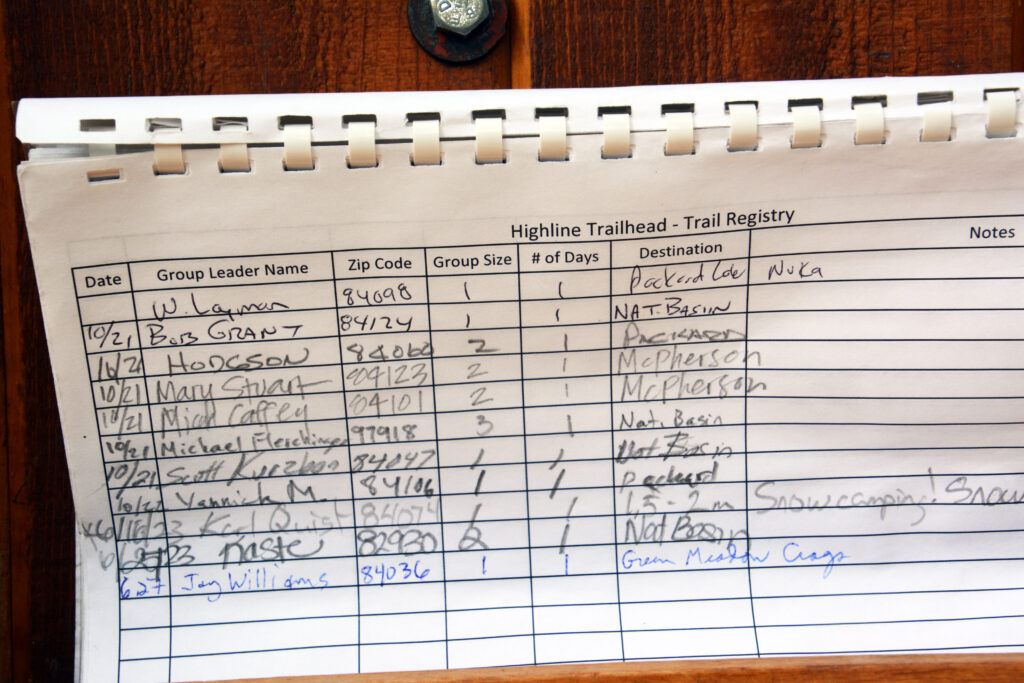 Highline Trailhead - Trail Registry
Date Group Leader Name Zip Code Group Size # of Days Destination Notes
W. Layman 84098 1 1 Packard Nuka
10/21 BOB GRANT 84124 1 1 NAT. BASIN
10/21 HODGSON 84060 2 1 PACKARD
10/21 Mary Stuart 84123 2 1 McPherson
10/21 Caffey 84101 2 1 McPherson
10/21 Michael 97918 3 1 Nat. Basin
10/21 Scott Kurzban 84047 1 1 Nat Basin
10/22 Yannick M. 84106 1 1 Packard
Karl Quist 84074 1 1.5-2m Snowcamping! Snow
6/25/23 Naste 82930 2 1 Nat Basin
6.27 Jay Williams 84036 1 1 Green Meadow Crags